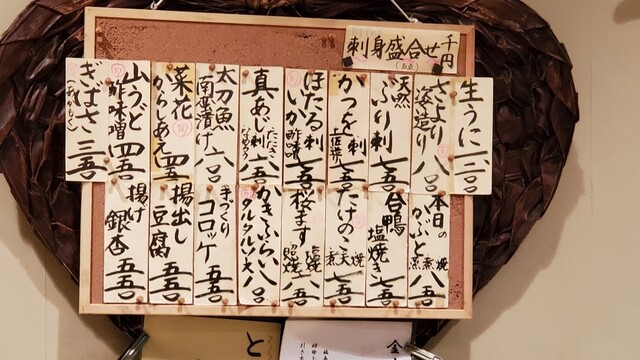 刺身盛合せ 千円
(五点)
生うに 一二〇〇
さより 姿造り 八〇〇
天然 ぶり刺 七五〇
かつを 刺 土佐造り 七五〇
ほたる いか 刺 酢味噌 七五〇
真あじ 刺 たたき なめろう 八五〇
太刀魚 南蛮漬け 六〇〇
菜花 からしあえ 四五〇
山うど 酢味噌 四五〇
ぎばさ (あかもく) 三五〇
本日の かぶと 蒸 煮 焼 八五〇
合鴨 塩焼き 七五〇
たけのこ 煮 天 焼 七五〇
桜ます 塩焼 照焼 八五〇
かきふらい タルタルソース 八〇〇
手づくり コロッケ 五五〇
揚出し 豆腐 五五〇
揚げ 銀杏 五五〇
と
金